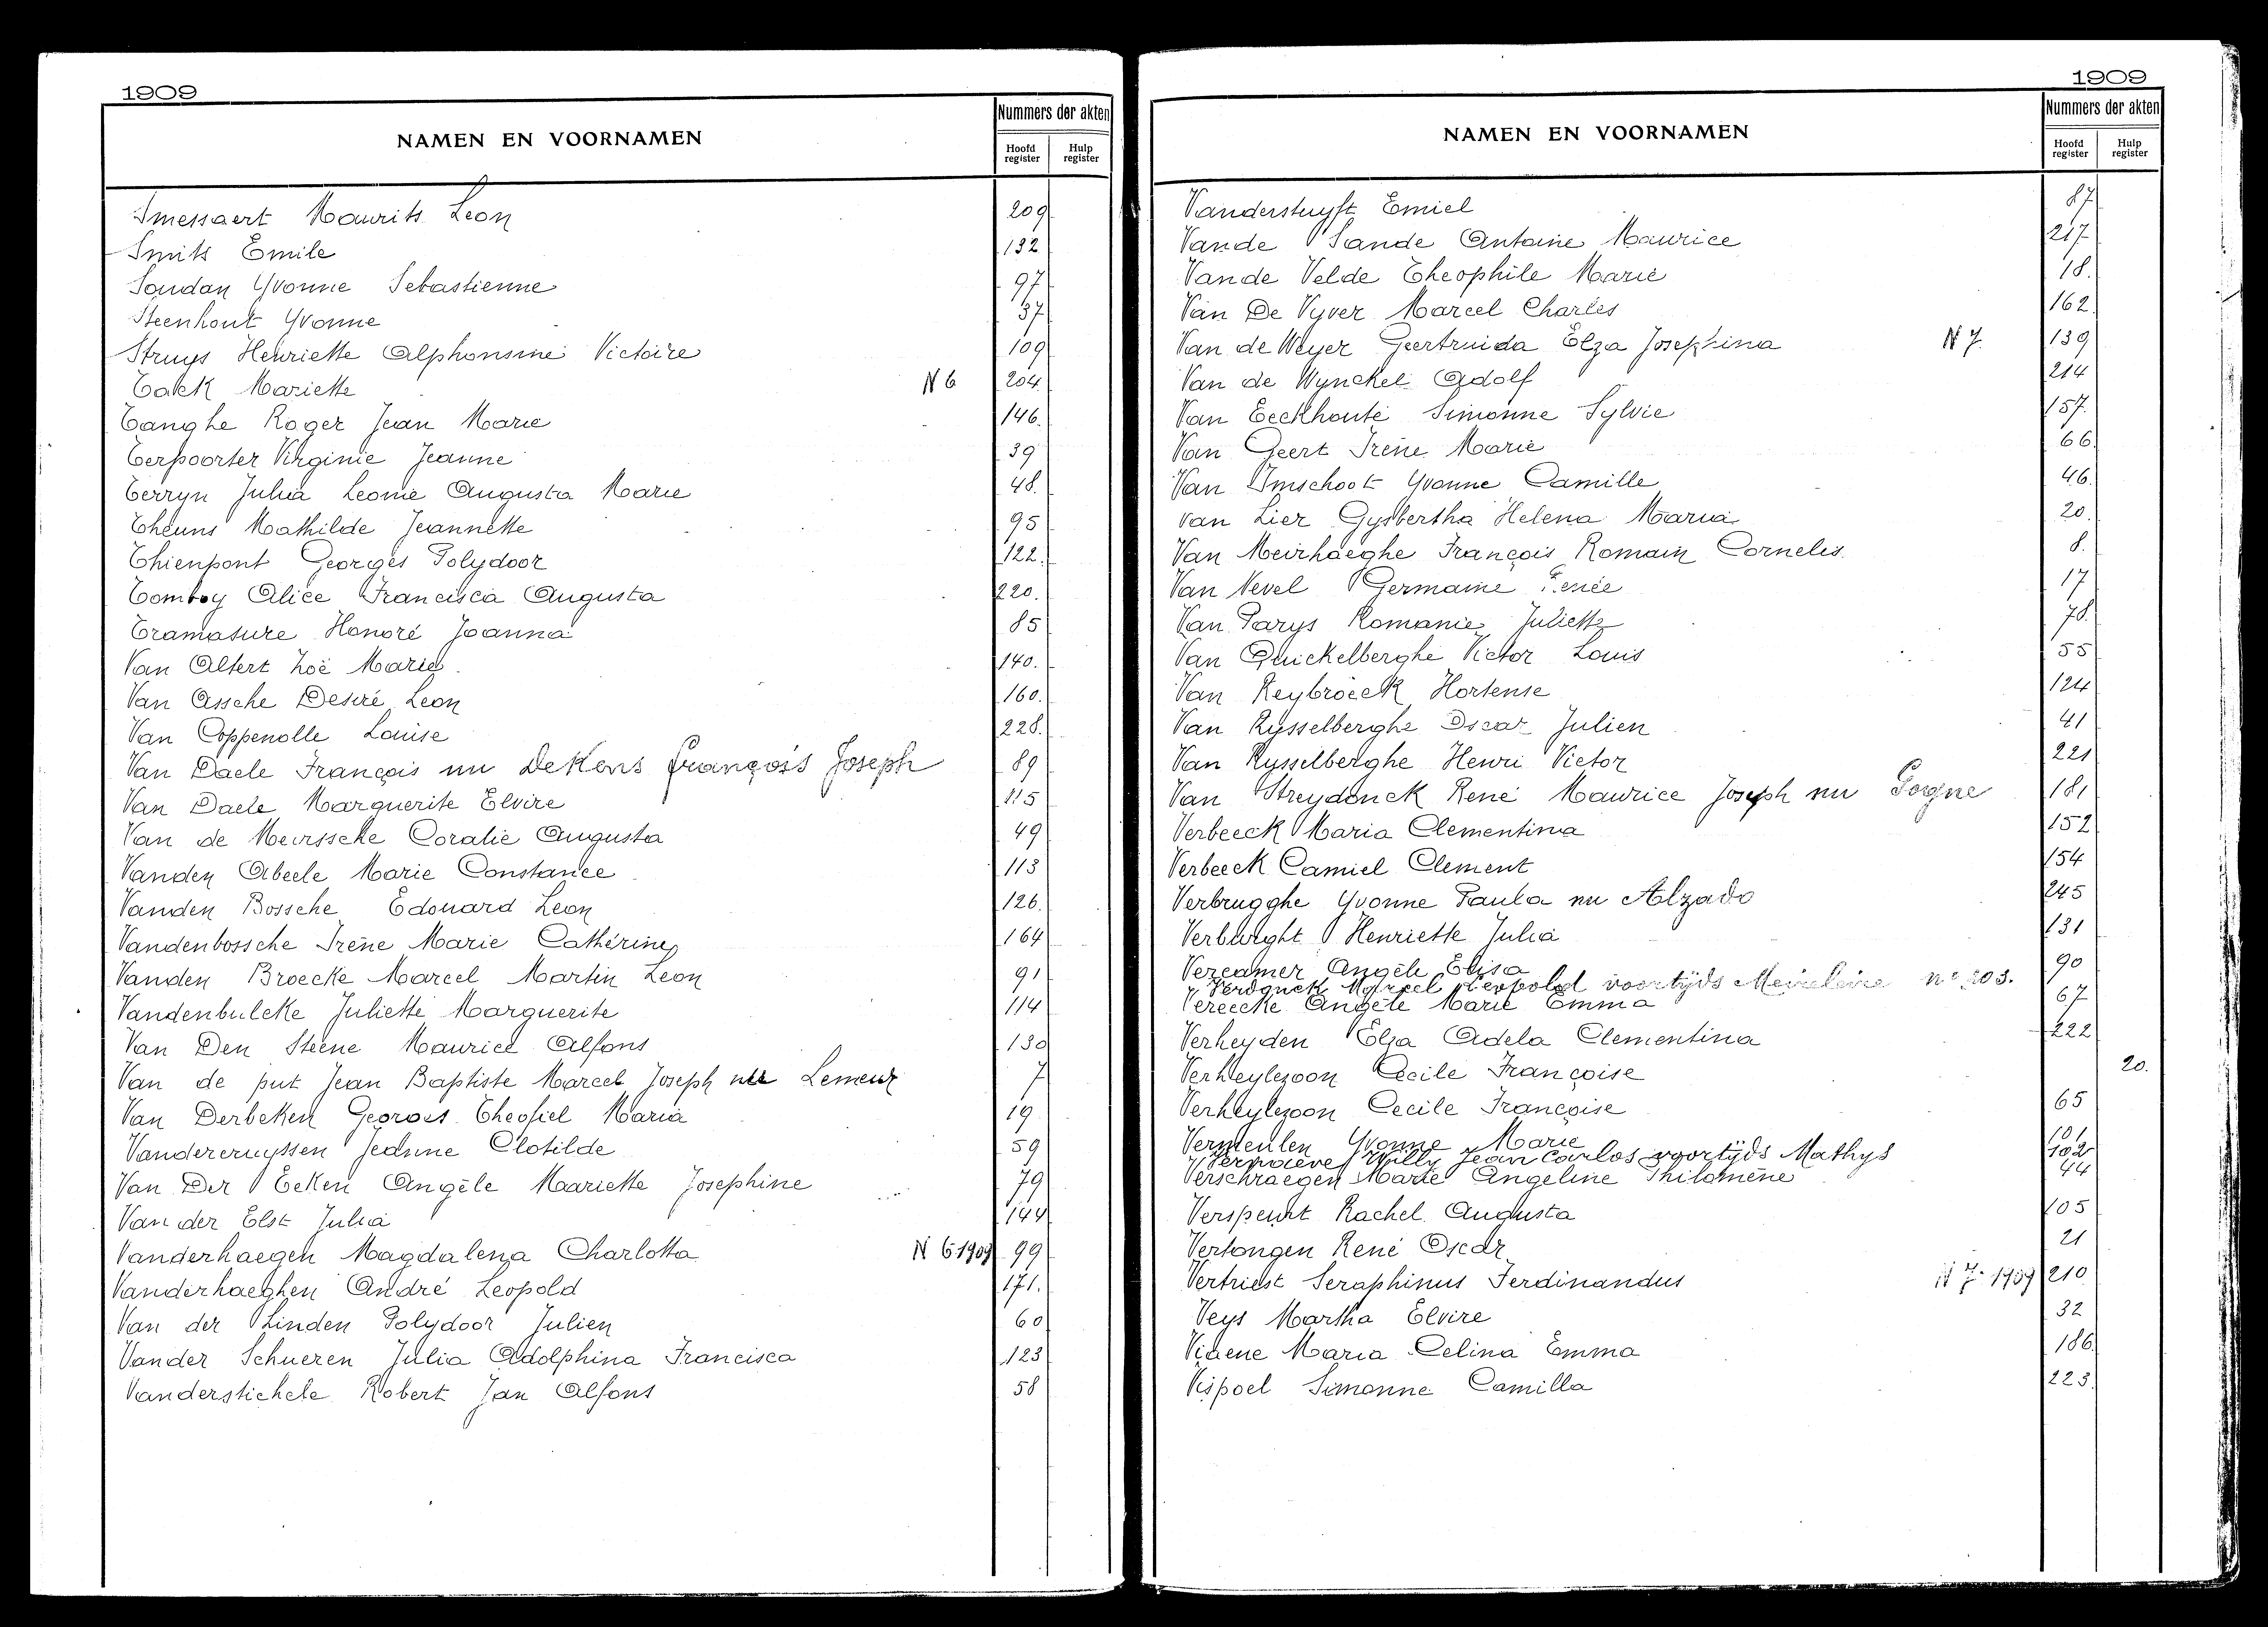 1909
NAMEN EN VOORNAMEN
Nummers der akten
Hoofd register
Hulp register
Smessaert Maurits Leon 209
Smits Emile 132
Soudan Yvonne Sebastienne 97
Steenhout Yvonne 37
Struys Henriette Alphonsine Victoire 109
Tack Mariette N 6 204
Tanghe Roger Jean Marie 146.
Terpoorter Virginie Jeanne 39
Terryn Julia Leonie Augusta Marie 48.
Theuns Mathilde Jeannette 95
Thienpont Georges Polydoor 122.
Tomboy Alice Francisca Augusta 220.
Tramasure Honoré Joanna 85
Van Altert Zoë Marie. 140.
Van Assche Desiré Leon 160.
Van Coppenolle Louise 228.
Van Daele François nu DeKens François Joseph 89
Van Daele Marguerite Elvire 115
Van de Meirssche Coralie Augusta 49
Vanden Abeele Marie Constance 113
Vanden Bossche Edouard Leon 126.
Vandenbossche Irène Marie Cathérine 164
Vanden Broecke Marcel Martin Leon 91
Vandenbulcke Juliette Marguerite 114
Van Den Steene Maurice Alfons 130
Van de put Jean Baptiste Marcel Joseph nu Lemeur 7
Van Derbeken Georges Theofiel Maria 19
Vandercruyssen Jeanne Clotilde 59
Van Der Eeken Angèle Mariette Josephine 79
Van der Elst Julia 144
Vanderhaegen Magdalena Charlotta N 6 1909 99
Vanderhaeghen André Leopold 171.
Van der Linden Polydoor Julien 60
Vander Schueren Julia Adolphina Francisca 123
Vanderstichele Robert Jan Alfons 58
1909
NAMEN EN VOORNAMEN
Nummers der akten
Hoofd register
Hulp register
Vanderstuyft Emiel 87
Vande Sande Antoine Maurice 217
Vande Velde Theophile Marie 18.
Van De Vyver Marcel Charles 162
Van de Weyer Geertruida Elza Josephina N 7. 139
Van de Wynckel Adolf 214
Van Eeckhoute Simonne Sylvie 157.
Van Geert Irène Marie 66
Van Imschoot Yvonne Camille 46.
van Lier Gysbertha Helena Maria 20.
Van Meirhaeghe François Romain Cornelis 8.
Van Nevel Germaine Renée 17
Van Parys Romanie Juliette 78.
Van Quickelberghe Victor Louis 55
Van Reybroeck Hortense 124
Van Rysselberghe Oscar Julien 41
Van Rysselberghe Henri Victor 221
Van Streydonck René Maurice Joseph nu Gogne 181
Verbeeck Maria Clementina 152
Verbeeck Camiel Clement 154
Verbrugghe Yvonne Paula nu Alzado 245
Verburght Henriette Julia 131
Vercamer Angèle Elisa 90
Verdonck Marcel Leopold voortijds Meireleire n° 203.
Vereecke Angèle Marie Emma 67
Verheyden Elza Adela Clementina 222
Verheylezoon Cecile Françoise 20.
Verheylezoon Cecile Françoise 65
Vermeulen Yvonne Marie 101
Vernaeve Willy Jean Carlos voortijds Mathys 102
Verschraegen Marie Angeline Philomène 44
Verspeurt Rachel Augusta 105
Vertongen René Oscar 21
Vertriest Seraphinus Ferdinandus N 7- 1909 210
Veys Martha Elvire 32
Viaene Maria Celina Emma 186
Vispoel Simonne Camilla 223.